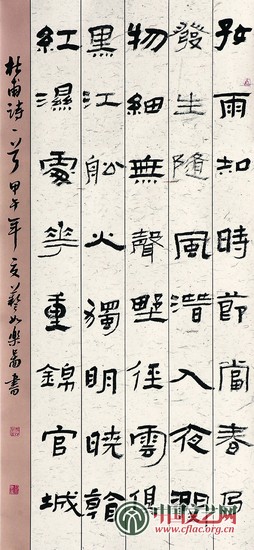 好雨知時節當春乃
發生隨風潛入夜潤
物細無聲野徑雲俱
黑江船火獨明曉看
紅濕處花重錦官城
杜甫詩一首甲午年
中国文艺网
www.cflac.org.cn